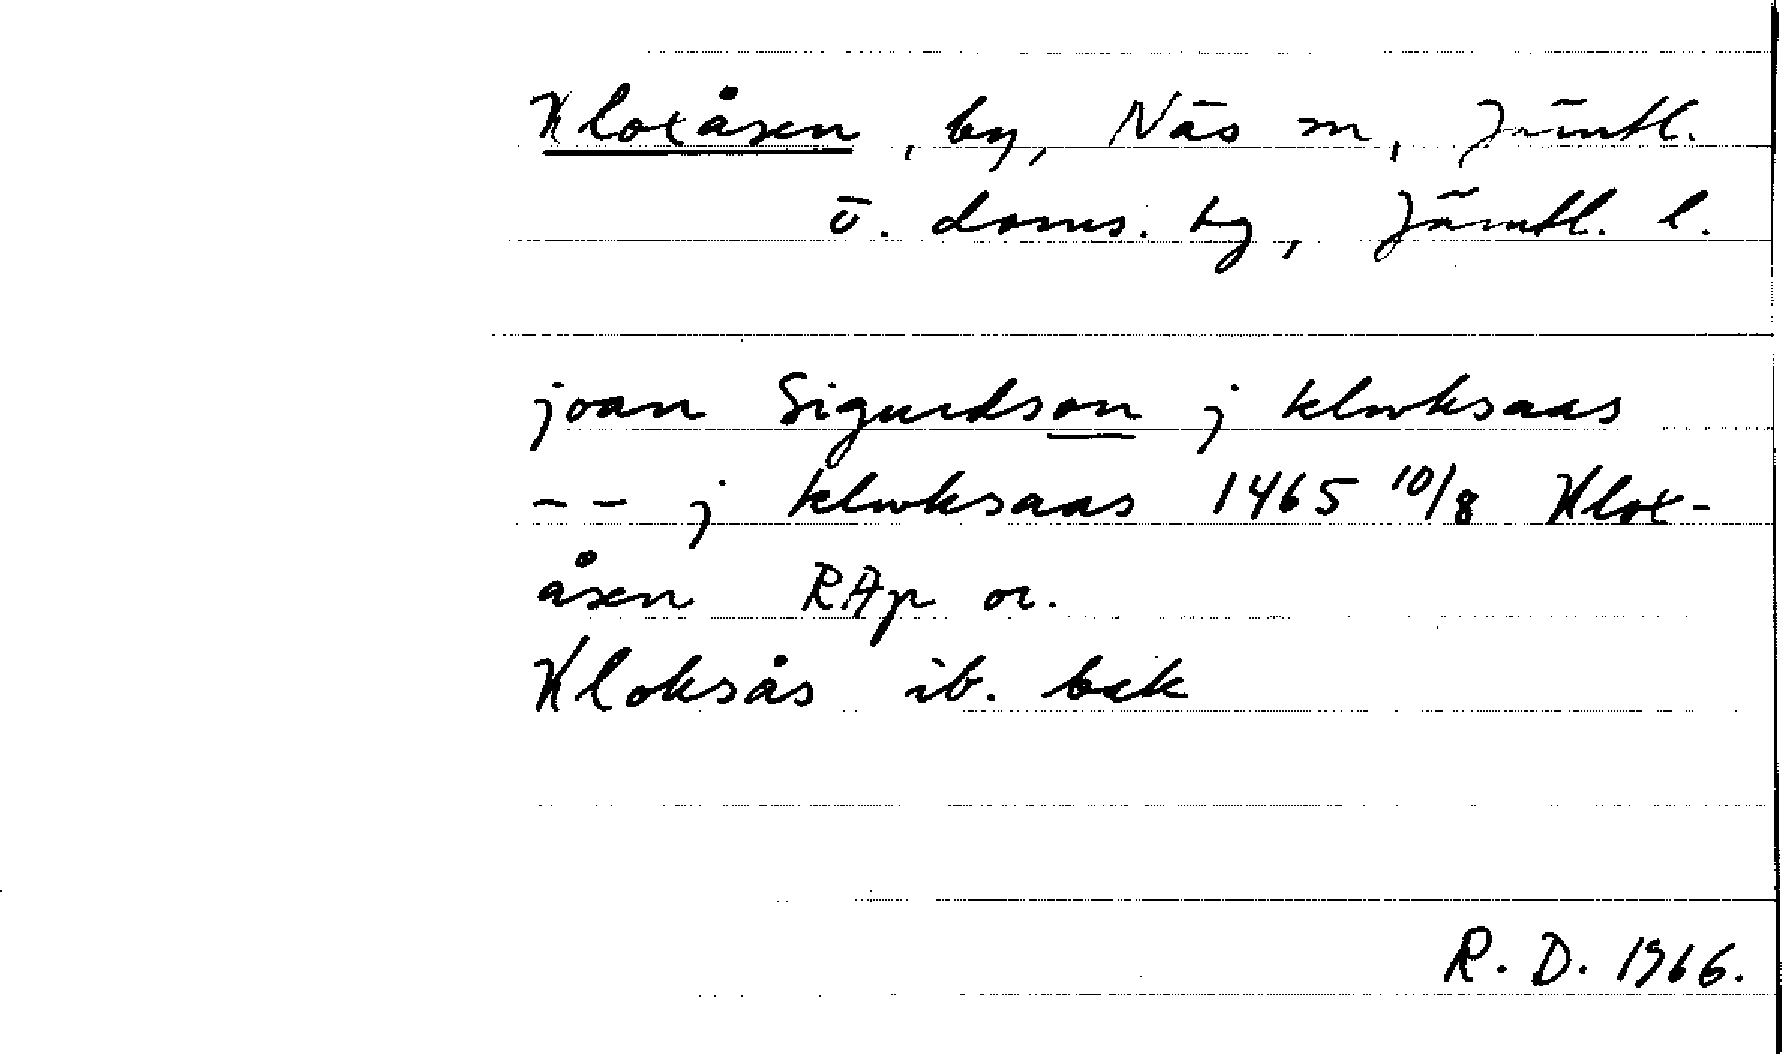 Kloxåsen, by, Näs sn, Jämtl.
v. doms. hg, Jämtl. l.
joan Sigurdson j klwksaas
-- j klwksaas 1465 10/8 Klox-
åsen RAp or.
Kloksås ib. bak
R. D. 1966.